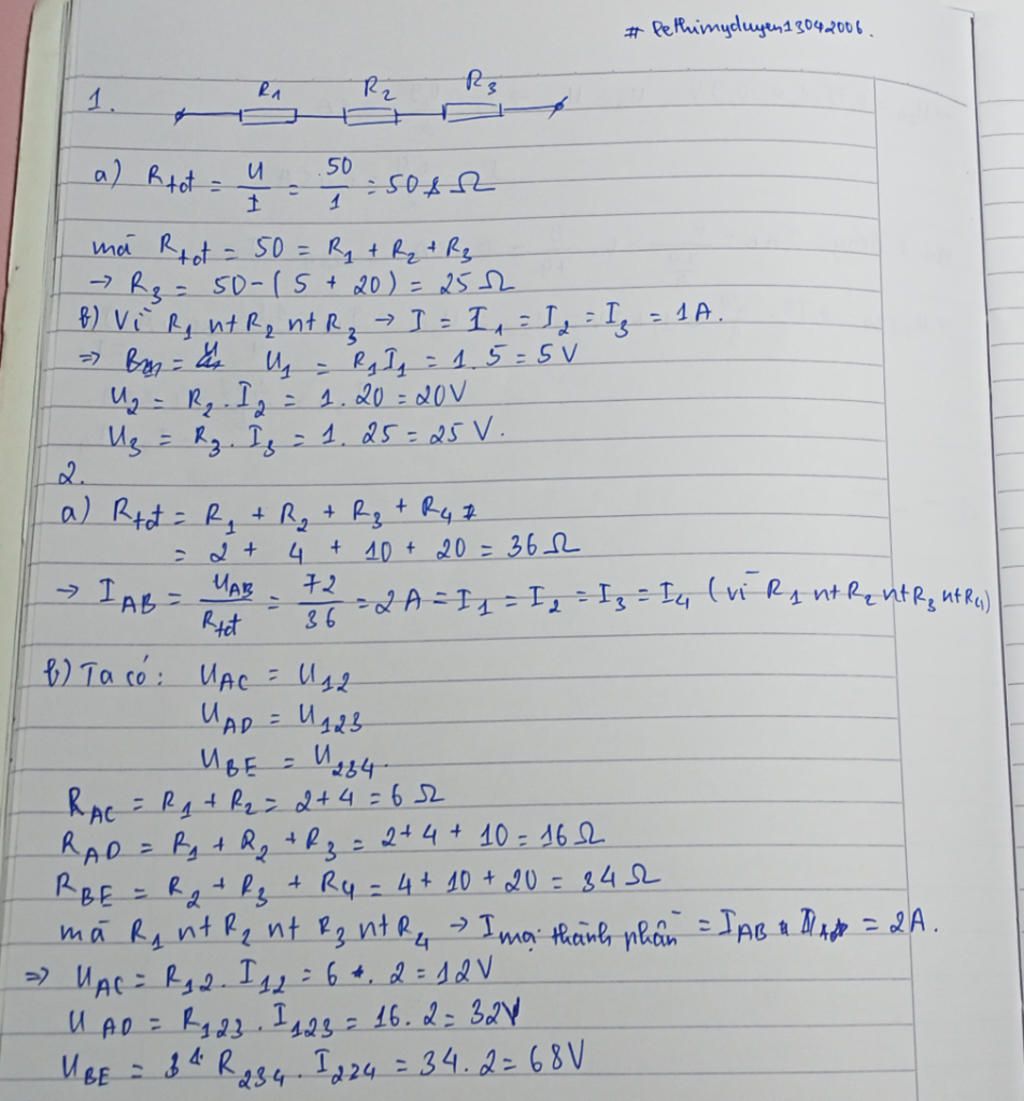 # lethimyduyen13042006.
1.
R1 R2 R3
a) Rtđ = U/I = 50/1 = 50 Ω
mà Rtđ = 50 = R1 + R2 + R3
→ R3 = 50 - ( 5 + 20 ) = 25 Ω
b) Vì R1 nt R2 nt R3 → I = I1 = I2 = I3 = 1A.
⇒ U1 = R1 I1 = 1. 5 = 5 V
U2 = R2 . I2 = 1. 20 = 20V
U3 = R3 . I3 = 1. 25 = 25 V.
2.
a) Rtđ = R1 + R2 + R3 + R4
= 2 + 4 + 10 + 20 = 36 Ω
→ IAB = UAB/Rtđ = 72/36 = 2 A = I1 = I2 = I3 = I4 ( vì R1 nt R2 nt R3 nt R4)
b) Ta có: UAC = U12
UAD = U123
UBE = U234.
RAC = R1 + R2 = 2 + 4 = 6 Ω
RAD = R1 + R2 + R3 = 2 + 4 + 10 = 16 Ω
RBE = R2 + R3 + R4 = 4 + 10 + 20 = 34 Ω
mà R1 nt R2 nt R3 nt R4 → I mọi thành phần = IAB = 2A.
⇒ UAC = R12 . I12 = 6 . 2 = 12V
UAD = R123 . I123 = 16. 2 = 32V
UBE = R234 . I224 = 34. 2 = 68V